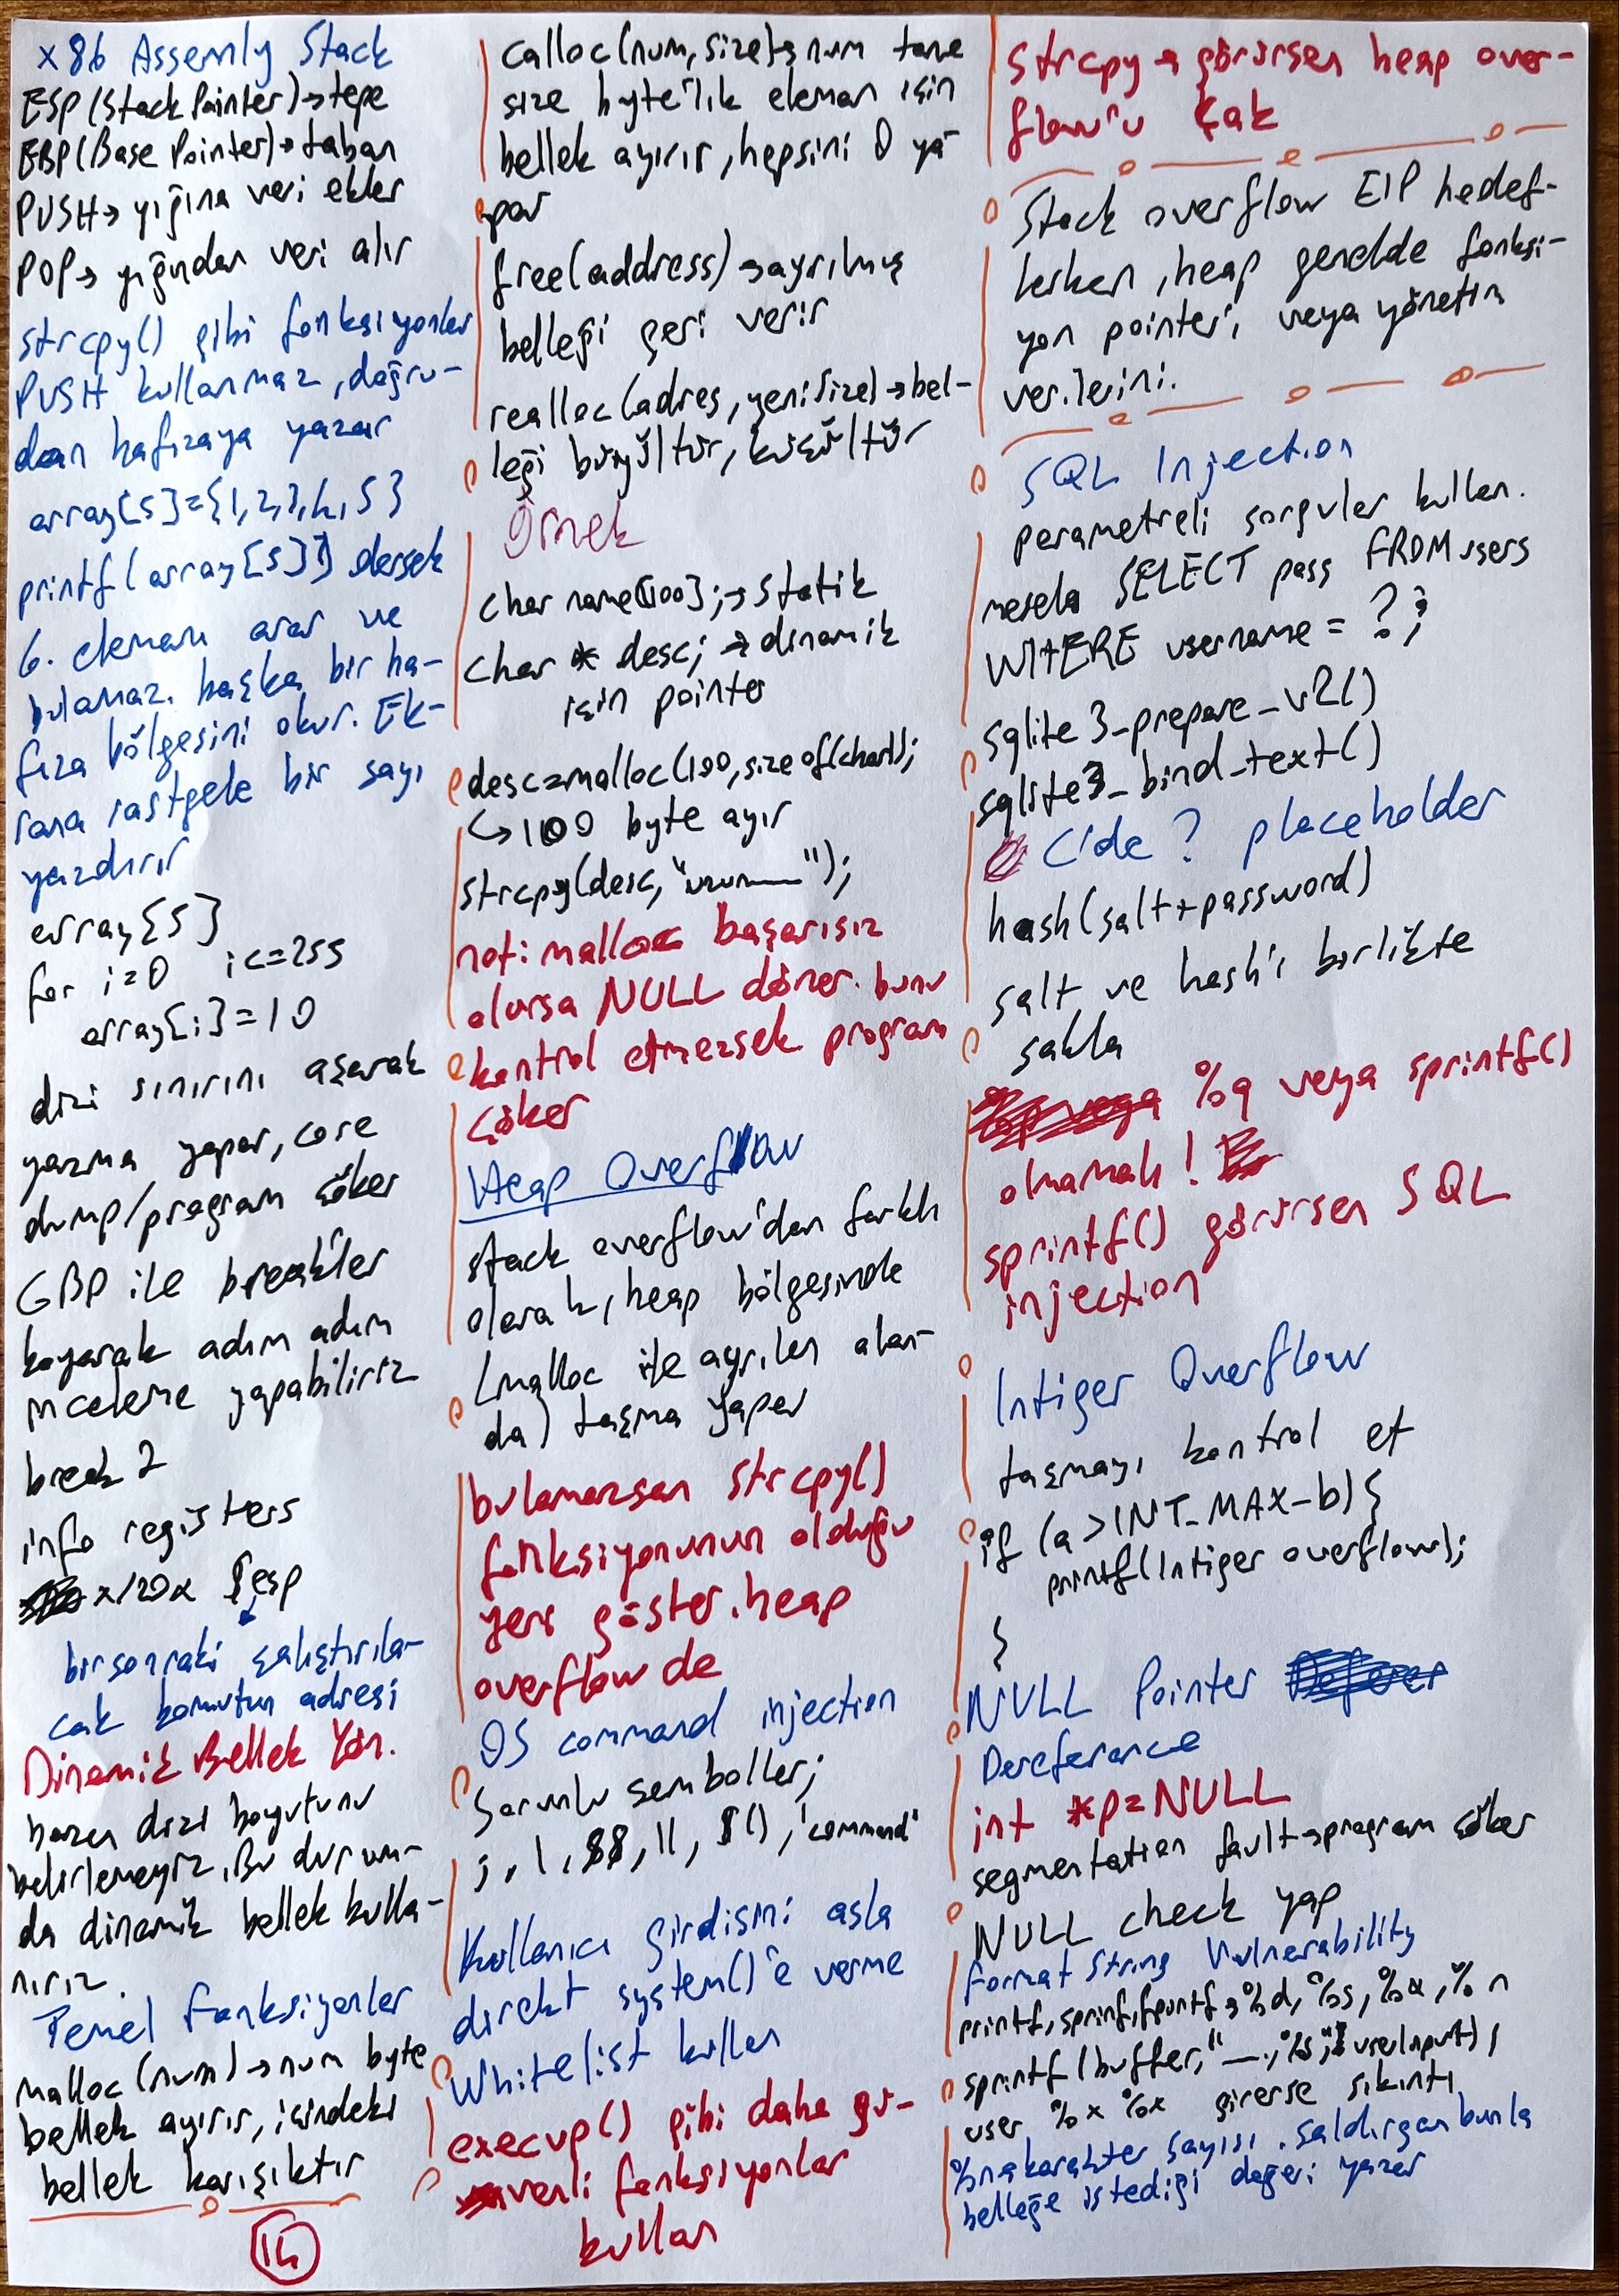 x86 Assembly Stack
ESP (Stack Pointer)→tepe
EBP (Base Pointer)→taban
PUSH→ yığına veri ekler
POP→ yığından veri alır
strcpy() gibi fonksiyonlar
PUSH kullanmaz, doğru-
dan hafızaya yazar
array[5]={1,2,3,4,5}
printf(array[5]) dersek
6. elemanı arar ve
bulamaz. başka bir ha-
fıza bölgesini okur. Ek-
rana rastgele bir sayı
yazdırır
array[5]
for i=0 i<=255
array[i]=10
dizi sınırını aşarak
yazma yapar, core
dump/program çöker
GBP ile break'ler
koyarak adım adım
inceleme yapabiliriz
break 2
info registers
x/20x $esp
bir sonraki çalıştırıla-
cak komutun adresi
Dinamik Bellek Yön.
bazen dizi boyutunu
belirlemeyiz. Bu durum-
da dinamik bellek kulla-
nırız.
Temel Fonksiyonlar
malloc(num)→num byte
bellek ayırır, içindeki
bellek karışıktır
14
calloc(num,size)→num tane
size byte'lık eleman için
bellek ayırır, hepsini 0 ya-
par
free(address)→ayrılmış
belleği geri verir
realloc(adres, yeniSize)→bel-
leği büyültür, küçültür
Örnek
char name[100];→statik
char * desc; → dinamik
için pointer
desc=malloc(100,sizeof(char));
↳100 byte ayır
strcpy(desc, "uzun___");
not: malloc başarısız
olursa NULL döner. bunu
kontrol etmezsek program
çöker
Heap Overflow
stack overflow'dan farklı
olarak, heap bölgesinde
(malloc ile ayrılan alan-
da) taşma yapar
bulamazsan strcpy()
fonksiyonunun olduğu
yeri göster. heap
overflow de
OS command injection
Sorunlu semboller;
; , | , &&, ||, $(), 'command'
Kullanıcı girdisini asla
direkt system()'e verme
Whitelist kullan
execvp() gibi daha gü-
venli fonksiyonlar
kullan
strcpy→görürsen heap over-
flow'u çak
Stack overflow EIP hedef-
lerken, heap genelde fonksi-
yon pointer'ı veya yönetim
verilerini.
SQL Injection
perametreli sorgular kullan.
mesela SELECT pass FROM users
WHERE username = ?;
sqlite3_prepare_v2()
sqlite3_bind_text()
C'de ? placeholder
hash(salt+password)
salt ve hash'i birlikte
sakla
%q veya sprintf()
olmamalı!
sprintf() görürsen SQL
injection
Intiger Overflow
taşmayı kontrol et
if (a>INT_MAX-b){
printf(Intiger overflow);
}
NULL Pointer
Dereferance
int *p=NULL
segmentation fault→program çöker
NULL check yap
Format String Vulnerability
printf, sprinf, fprintf→%d, %s, %x, % n
sprintf(buffer, "__.%s", userInput);
user %x %x girerse sıkıntı
%n→karakter sayısı. saldırgan bunla
belleğe istediği değeri yazar